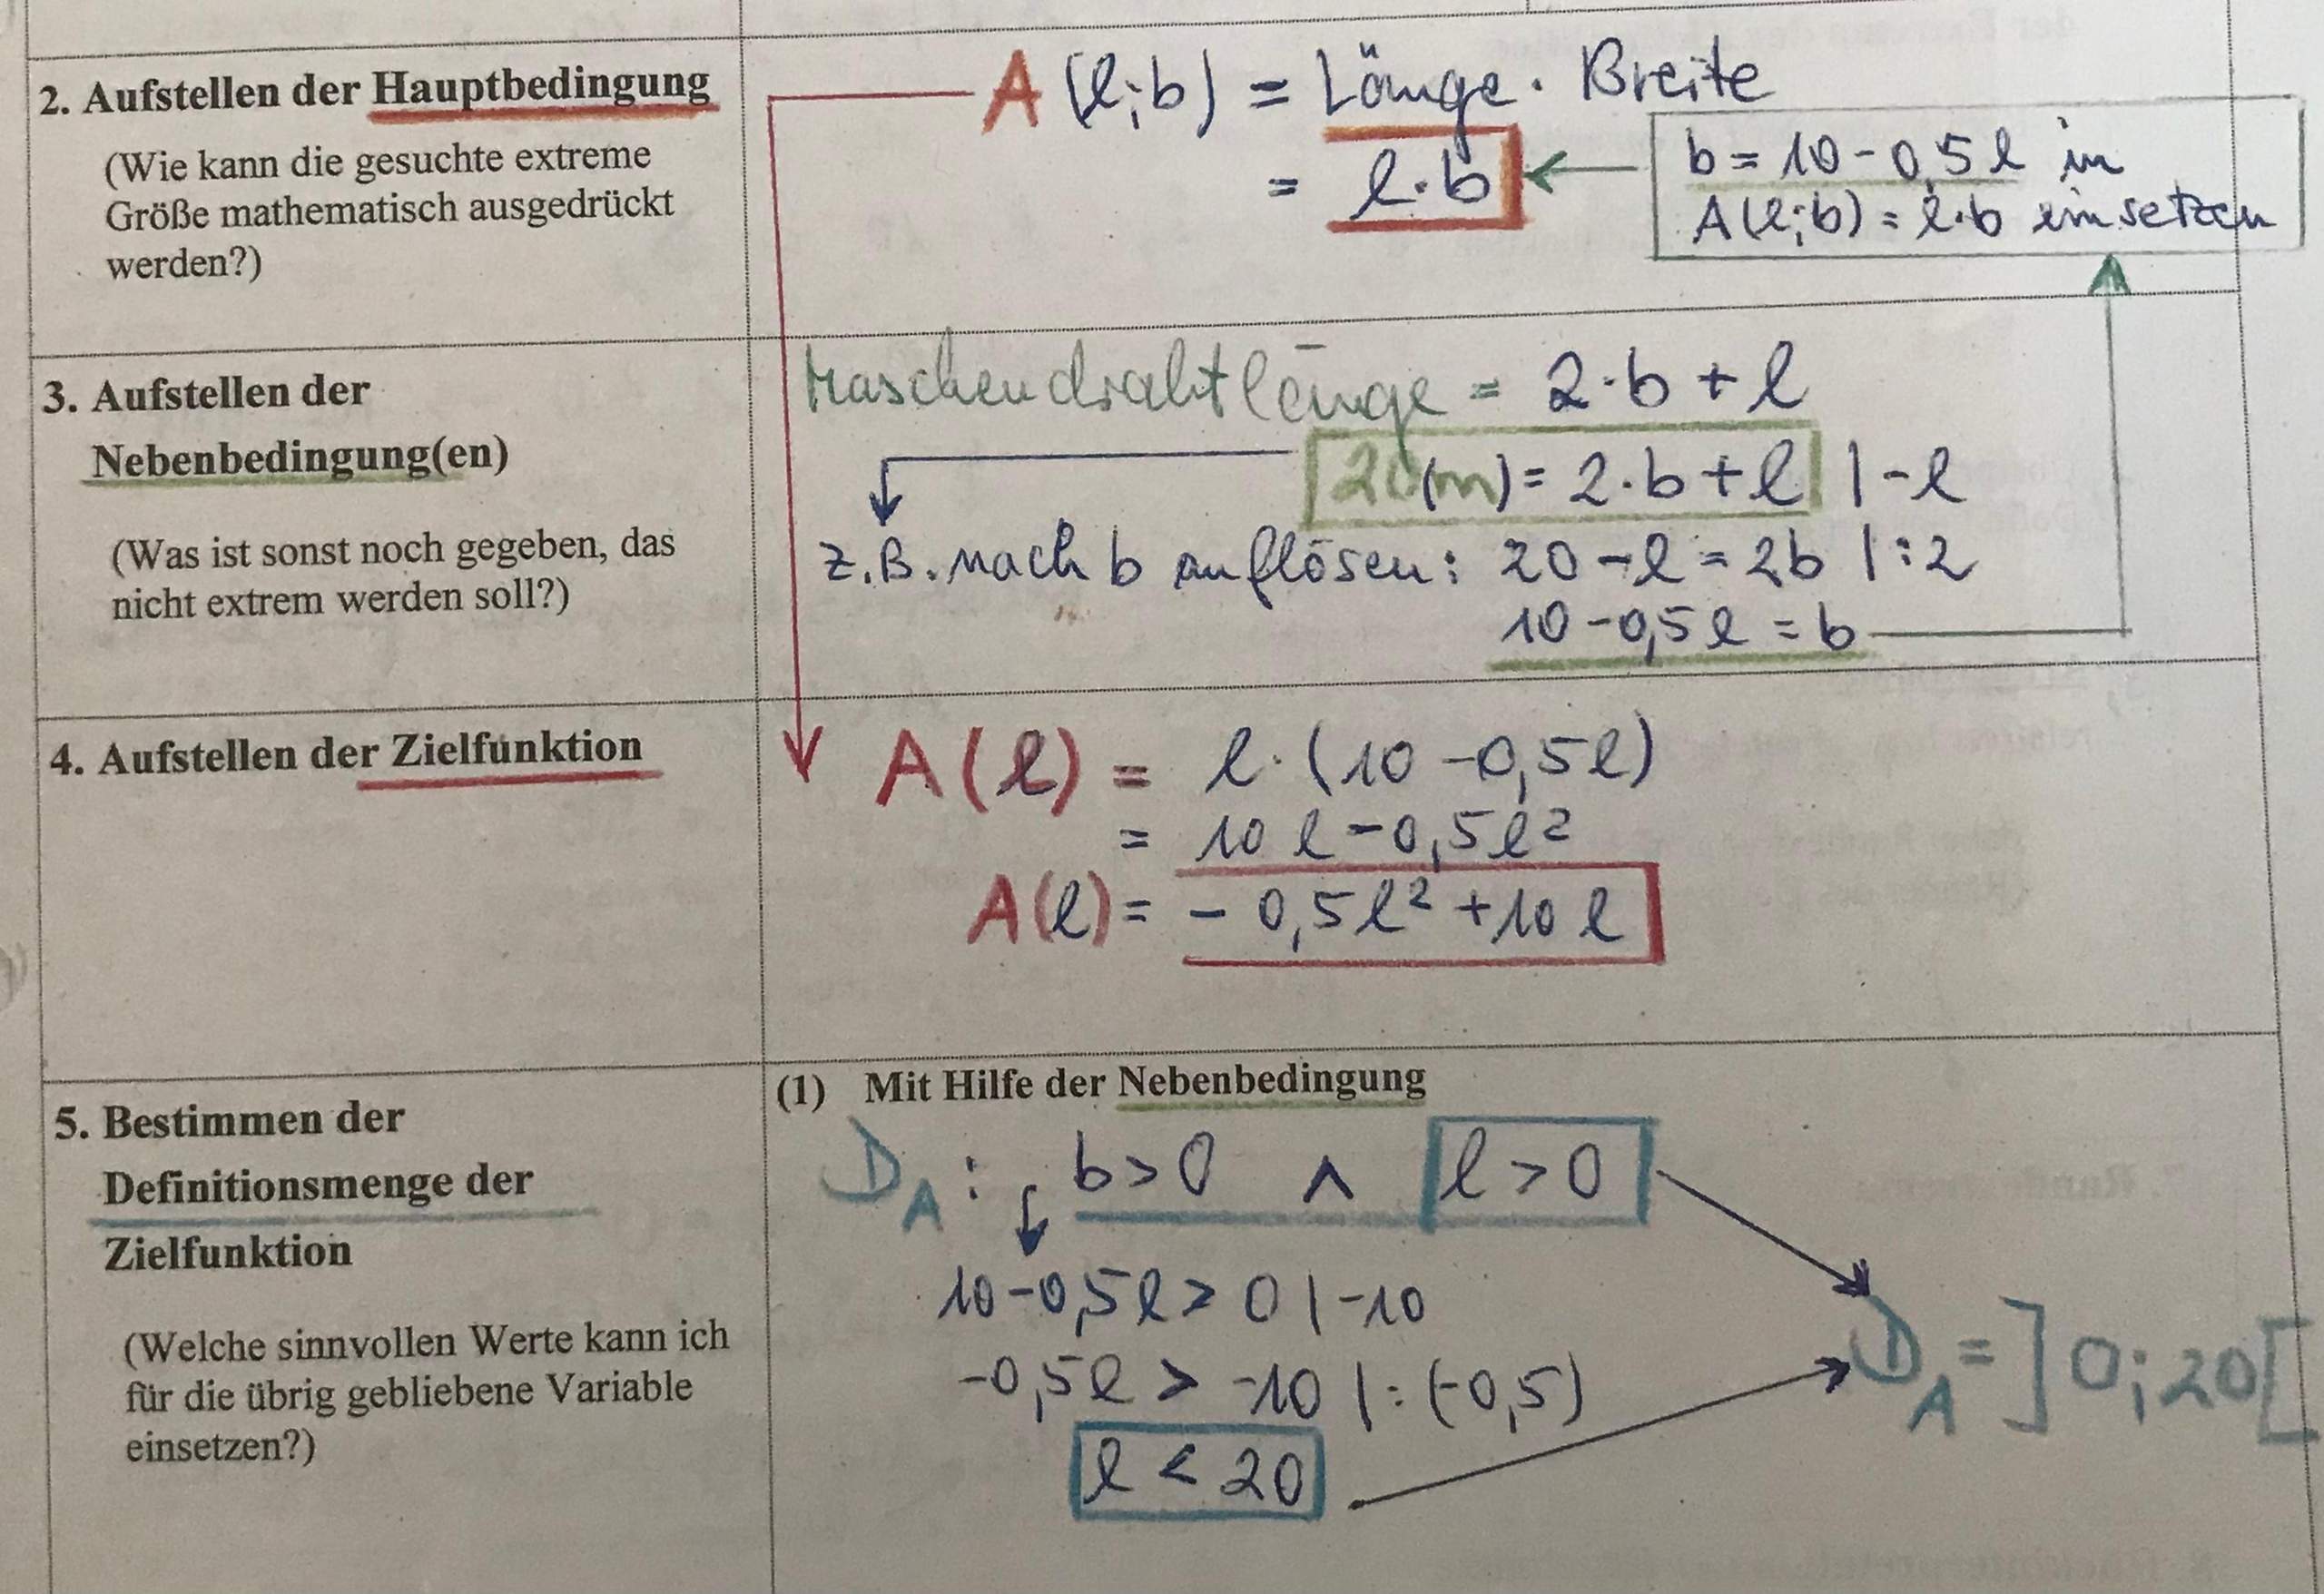 2. Aufstellen der Hauptbedingung
(Wie kann die gesuchte extreme
Größe mathematisch ausgedrückt
werden?)
A (l;b) = Länge · Breite
= l·b
b = 10 - 0,5 l in
A(l;b) = l·b einsetzen
3. Aufstellen der
Nebenbedingung(en)
(Was ist sonst noch gegeben, das
nicht extrem werden soll?)
Maschendrahtlänge = 2·b + l
20 (m) = 2·b + l | - l
z.B. nach b auflösen: 20 - l = 2b | : 2
10 - 0,5 l = b
4. Aufstellen der Zielfunktion
A (l) = l · (10 - 0,5 l)
= 10 l - 0,5 l²
A(l) = - 0,5 l² + 10 l
5. Bestimmen der
Definitionsmenge der
Zielfunktion
(Welche sinnvollen Werte kann ich
für die übrig gebliebene Variable
einsetzen?)
(1) Mit Hilfe der Nebenbedingung
D_A : b > 0 ∧ l > 0
10 - 0,5 l > 0 | - 10
-0,5 l > -10 | : (-0,5)
l < 20
D_A = ]0;20[